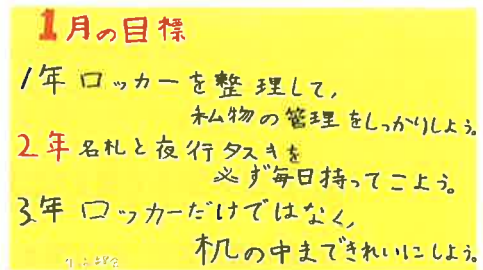 1月の目標
1年 ロッカーを整理して、
私物の管理をしっかりしよう。
2年 名札と夜行タスキを
必ず毎日持ってこよう。
3年 ロッカーだけではなく、
机の中まできれいにしよう。